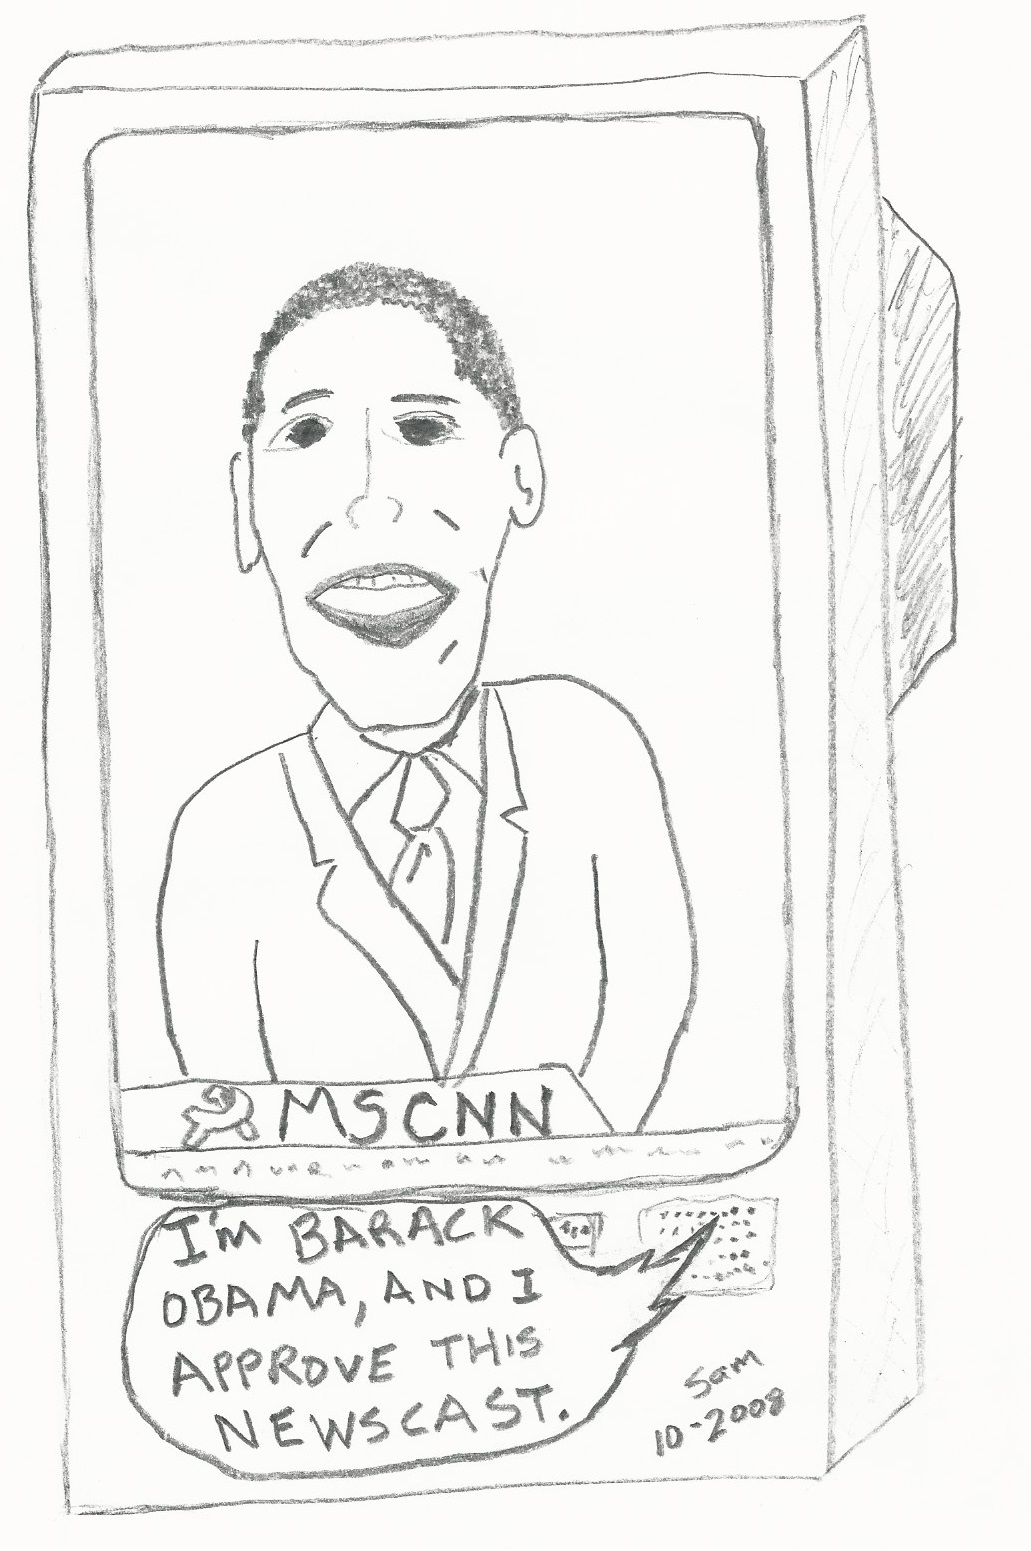 MSCNN
I'm BARACK
OBAMA, AND I
APPROVE THIS
NEWSCAST.
Sam
10-2008